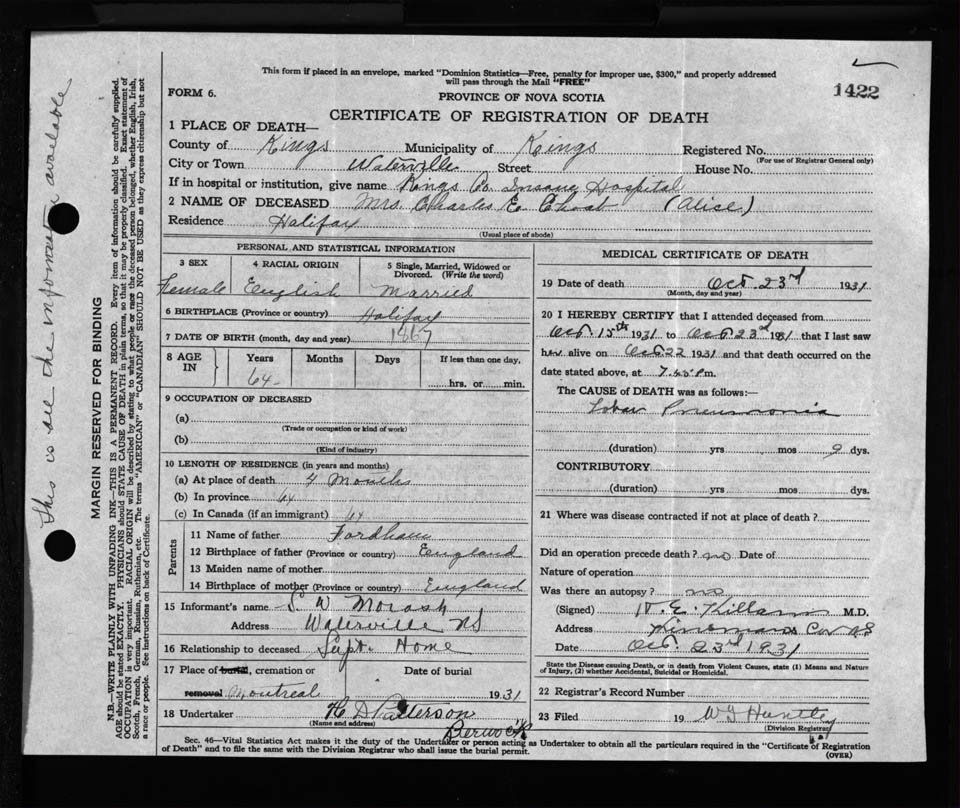 This form if placed in an envelope, marked "Dominion Statistics—Free, penalty for improper use, $300," and properly addressed
will pass through the Mail "FREE"
1422
FORM 6.
PROVINCE OF NOVA SCOTIA
CERTIFICATE OF REGISTRATION OF DEATH
1 PLACE OF DEATH—
County of Kings Municipality of Kings Registered No.
(For use of Registrar General only)
City or Town Waterville Street House No.
If in hospital or institution, give name Kings Co. Insane Hospital
2 NAME OF DECEASED Mrs. Charles E. Choat (Alice)
Residence Halifax
(Usual place of abode)
PERSONAL AND STATISTICAL INFORMATION
3 SEX 4 RACIAL ORIGIN 5 Single, Married, Widowed or
Divorced. (Write the word)
Female English Married
6 BIRTHPLACE (Province or country) Halifax
7 DATE OF BIRTH (month, day and year) 1867
8 AGE IN Years Months Days If less than one day,
64 hrs. or min.
9 OCCUPATION OF DECEASED
(a)
(Trade or occupation or kind of work)
(b)
(Kind of industry)
10 LENGTH OF RESIDENCE (in years and months)
(a) At place of death 4 Months
(b) In province 64
(c) In Canada (if an immigrant) 64
Parents
11 Name of father Fordham
12 Birthplace of father (Province or country) England
13 Maiden name of mother
14 Birthplace of mother (Province or country) England
15 Informant's name S. W Morash
Address Waterville NS
16 Relationship to deceased Supt. Home
17 Place of burial, cremation or Date of burial
removal Montreal 1931
18 Undertaker H D Patterson
(Name and address) Berwick
MEDICAL CERTIFICATE OF DEATH
19 Date of death Oct. 23rd 1931
(Month, day and year)
20 I HEREBY CERTIFY that I attended deceased from
Oct. 15th 1931 to Oct 23rd 1931 that I last saw
her alive on Oct 22 1931 and that death occurred on the
date stated above, at 7. p.m.
The CAUSE of DEATH was as follows:
Lobar Pneumonia
(duration) yrs mos 9 dys.
CONTRIBUTORY
(duration) yrs mos dys.
21 Where was disease contracted if not at place of death?
Did an operation precede death? no Date of
Nature of operation
Was there an autopsy? no
(Signed) W. E. Killam M.D.
Address Cor NS
Date Oct. 23rd 1931
State the Disease causing Death, or in death from Violent Causes, state (1) Means and Nature
of Injury, (2) whether Accidental, Suicidal or Homicidal.
22 Registrar's Record Number
23 Filed 19 W G Huntley
(Division Registrar)
Sec. 46—Vital Statistics Act makes it the duty of the Undertaker or person acting as Undertaker to obtain all the particulars required in the "Certificate of Registration
of Death" and to file the same with the Division Registrar who shall issue the burial permit. (OVER)
This is all the information available
MARGIN RESERVED FOR BINDING
N.B.—WRITE PLAINLY WITH UNFADING INK—THIS IS A PERMANENT RECORD. Every item of information should be carefully supplied.
AGE should be stated EXACTLY. PHYSICIANS should STATE CAUSE OF DEATH in plain terms, so that it may be properly classified. Exact statement of
OCCUPATION is very important. RACIAL ORIGIN will be described by stating to what people or race the deceased person belonged, whether English, Irish,
Scotch, French, German, Russian, Ruthenian, etc. The terms "AMERICAN" or "CANADIAN" SHOULD NOT BE USED as they express citizenship but not
a race or people. See instructions on back of Certificate.